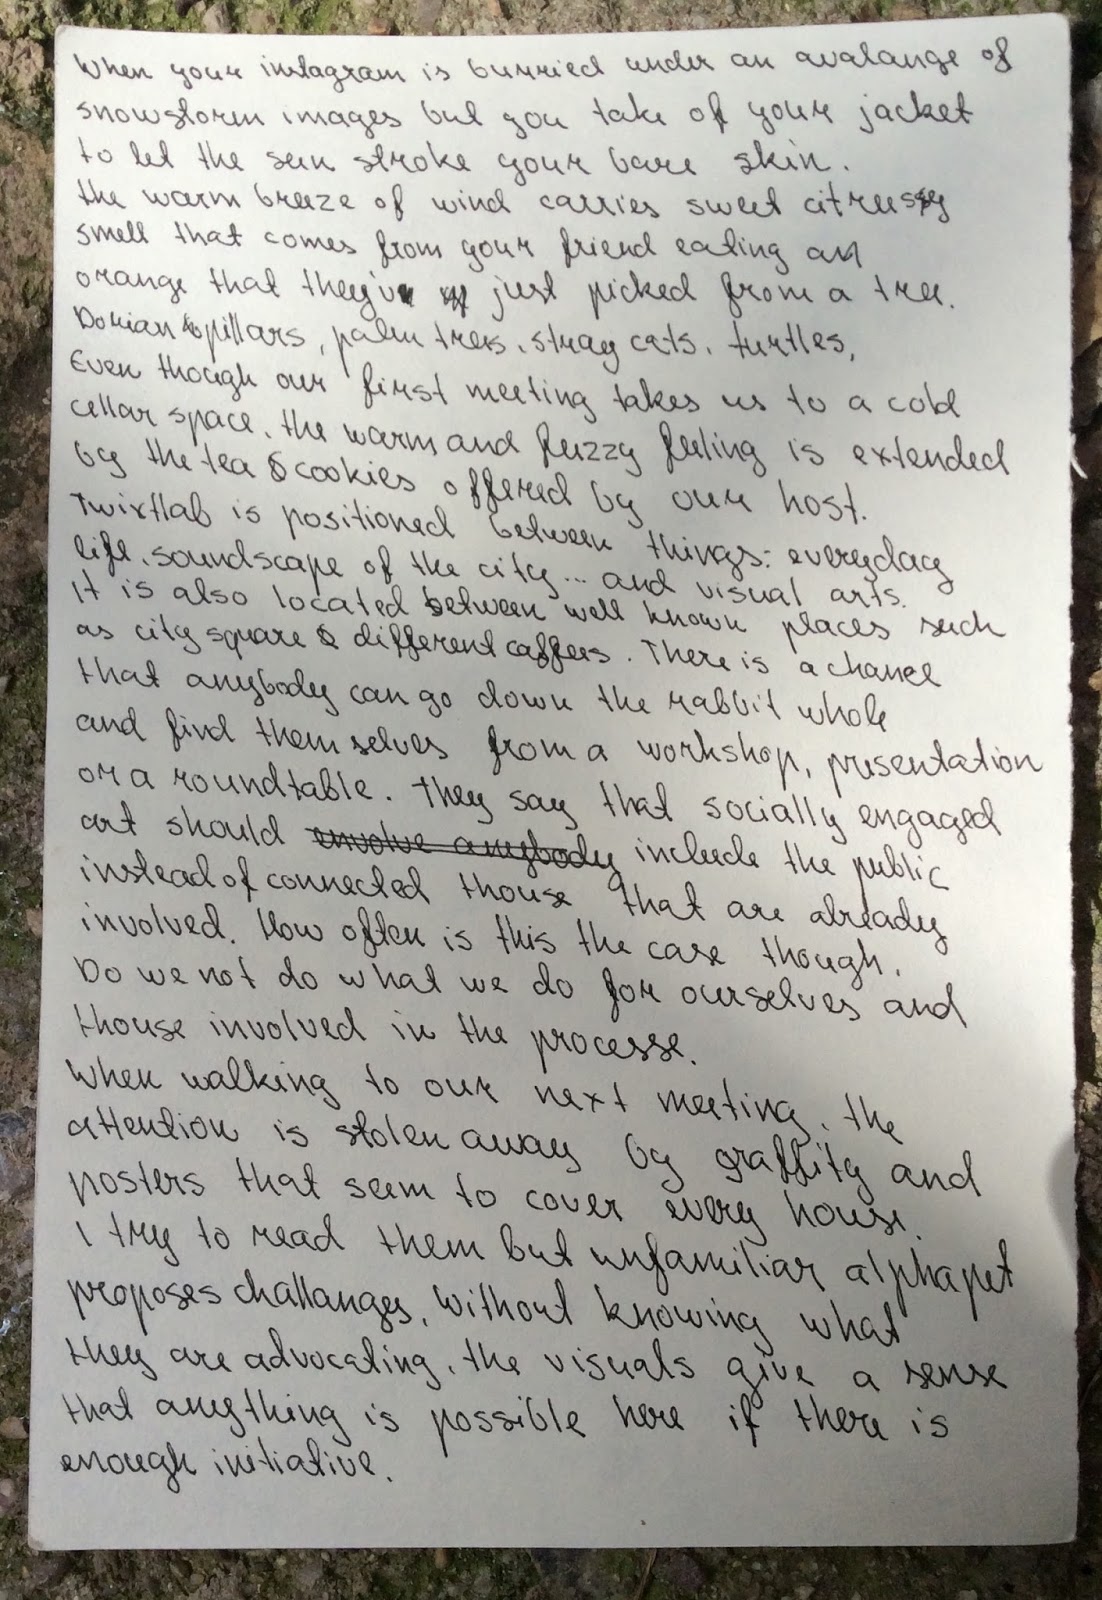 When your instagram is burried under an avalange of
snowstorm images but you take of your jacket
to let the sun stroke your bare skin.
the warm breeze of wind carries sweet citrusy
smell that comes from your friend eating an
orange that they've just picked from a tree.
Dorian pillars, palm trees, stray cats, turtles,
Even though our first meeting takes us to a cold
cellar space, the warm and fuzzy feeling is extended
by the tea & cookies offered by our host.
Twixtlab is positioned between things: everyday
life, soundscape of the city... and visual arts.
It is also located between well known places such
as city square & different caffees. There is a chance
that anybody can go down the rabbit whole
and find themselves from a workshop, presentation
or a roundtable. They say that socially engaged
art should envolve anybody include the public
instead of connected thouse that are already
involved. How often is this the case though.
Do we not do what we do for ourselves and
thouse involved in the processe.
When walking to our next meeting, the
attention is stolen away by graffity and
posters that seem to cover every house.
I try to read them but unfamiliar alphapet
proposes challanges, without knowing what
they are advocating, the visuals give a sense
that anything is possible here if there is
enough initiative.